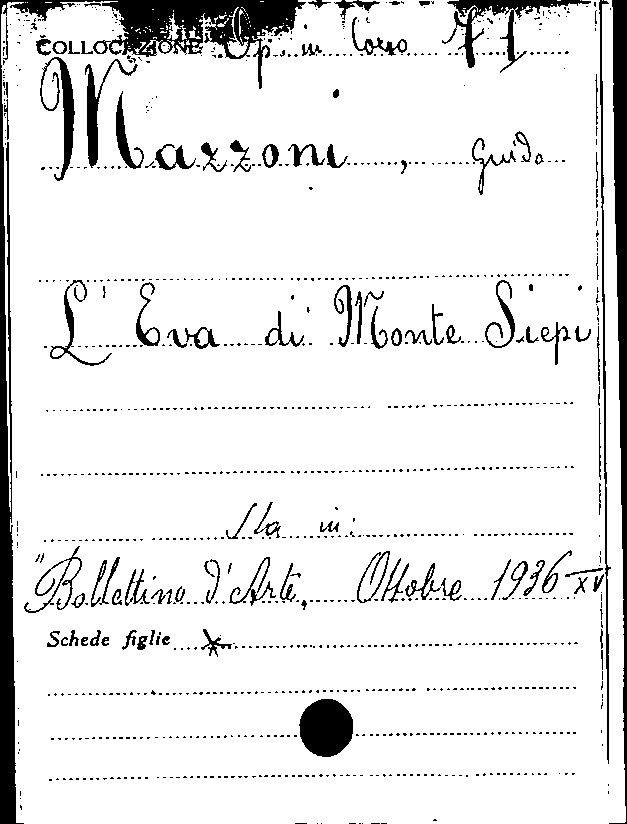 COLLOCAZIONE Op. in Corso 71
Mazzoni, Guido
L'Eva di Monte Siepi
Sta in:
"Bollettino d'Arte, Ottobre 1936-XV
Schede figlie